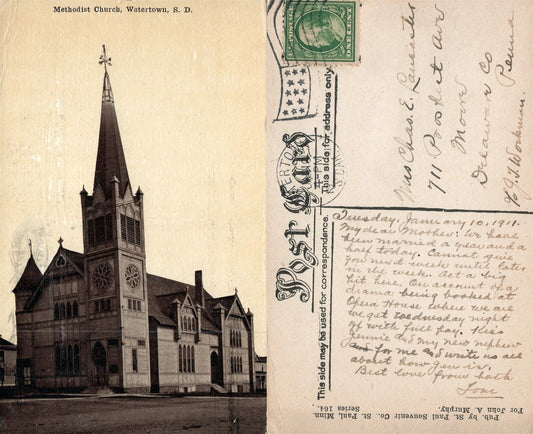 Methodist Church, Watertown, S. D.
Mrs Chas. E. Lancaster
711 Prospect Ave
Moore
Delaware Co
Penna
℅ J. T. Workman.
Post Card
This side for address only.
This side may be used for correspondence.
Tuesday, January 10, 1911.
My dear Mother: We have
been married a year and a
half today. Cannot give
you next week until later
in the week. Act a big
hit here. On account of a
drama being booked at
Opera House where we are
we get Wednesday night
off with full pay. Kiss
Jennie and my new nephew
for me and write us all
about how Jen is.
Best love from both
Tom
Pub. by St. Paul Souvenir Co., St. Paul, Minn.
For John A Murphy.
Series 164.